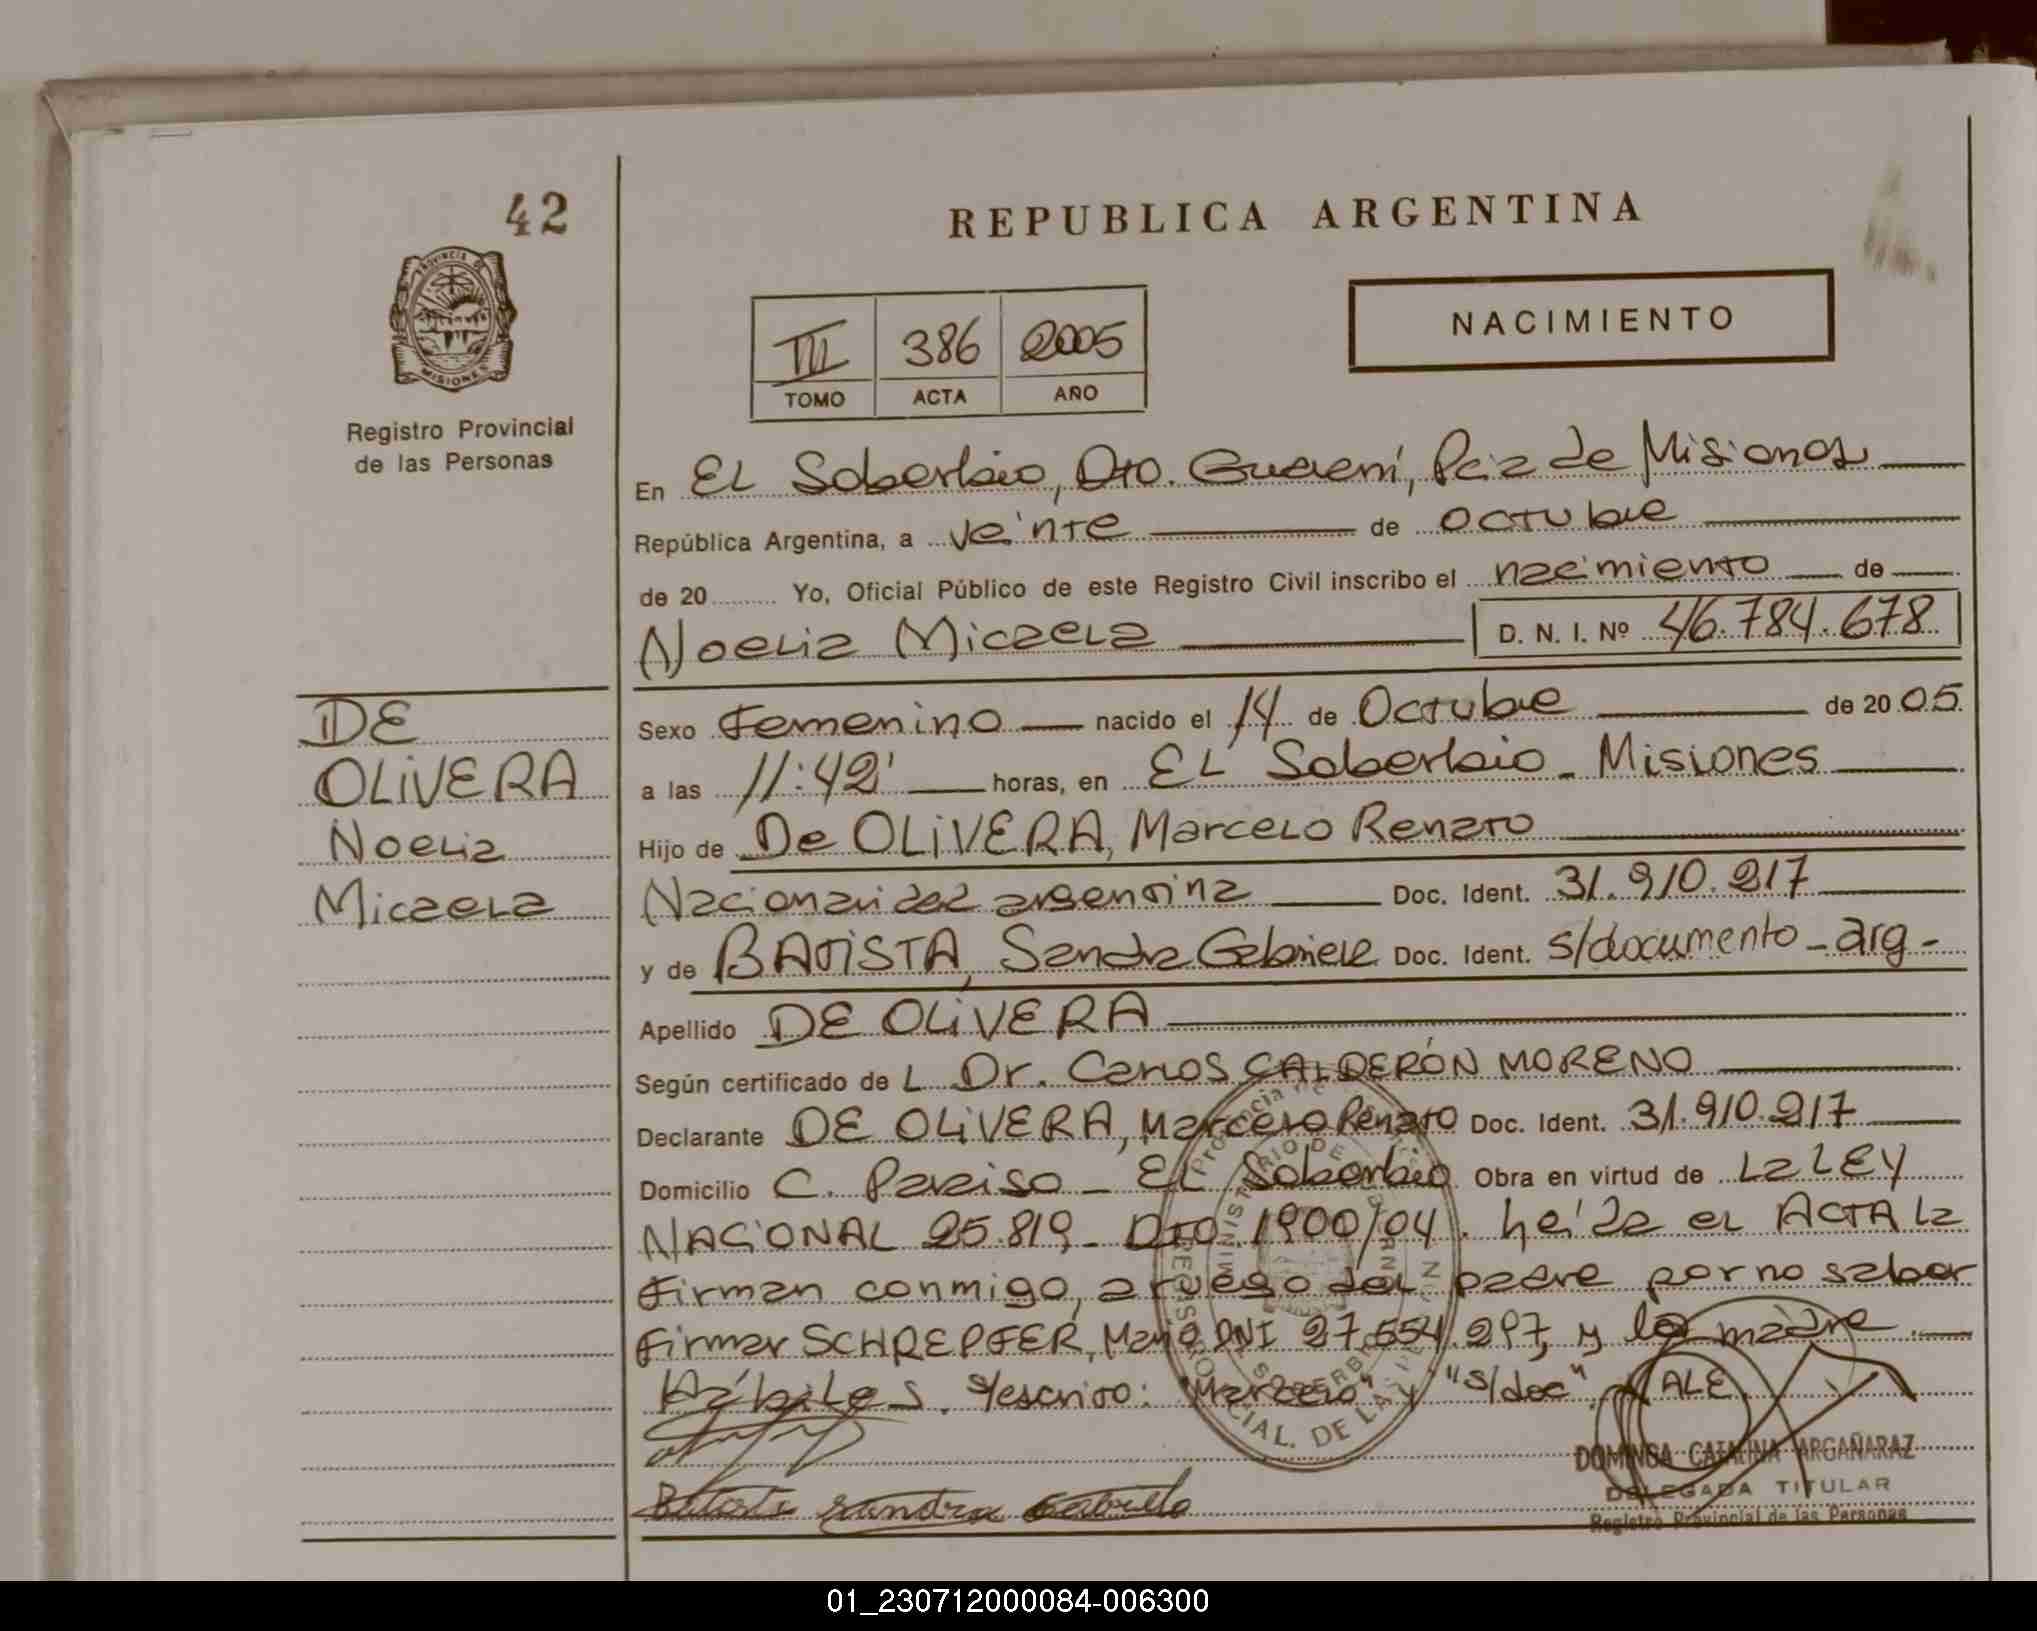 42
REPUBLICA ARGENTINA
PROVINCIA DE
MISIONES
NACIMIENTO
III 386 2005
TOMO ACTA AÑO
Registro Provincial
de las Personas
En EL Soberbio, Dto. Guaraní, Pcia de Misiones
República Argentina, a veinte de octubre
de 20 Yo, Oficial Público de este Registro Civil inscribo el nacimiento de
Noelia Micaela D. N. I. Nº 46.784.678
DE
OLIVERA
Noelia
Micaela
Sexo Femenino nacido el 14 de Octubre de 20 05
a las 11:42' horas, en EL Soberbio - Misiones
Hijo de De OLIVERA, Marcelo Renato
Nacionalidad argentina Doc. Ident. 31.910.217
y de BATISTA, Sandra Gabriela Doc. Ident. s/documento - arg -
Apellido DE OLIVERA
Según certificado de L Dr. Carlos CALDERÓN MORENO
Declarante DE OLIVERA, Marcelo Renato Doc. Ident. 31.910.217
Domicilio C. Paraiso - EL Soberbio Obra en virtud de La LEY
NACIONAL 25.819 - DTO. 1900/04. Leída el ACTA la
firman conmigo, a ruego del padre por no saber
firmar SCHREPFER, Mario DNI 27.554.297, y la madre
Hábiles. s/escrito: "Marcelo" y "s/doc" VALE
Batista Sandra Gabriela
DOMINGA CATALINA ARGAÑARAZ
DELEGADA TITULAR
Registro Provincial de las Personas
01_230712000084-006300